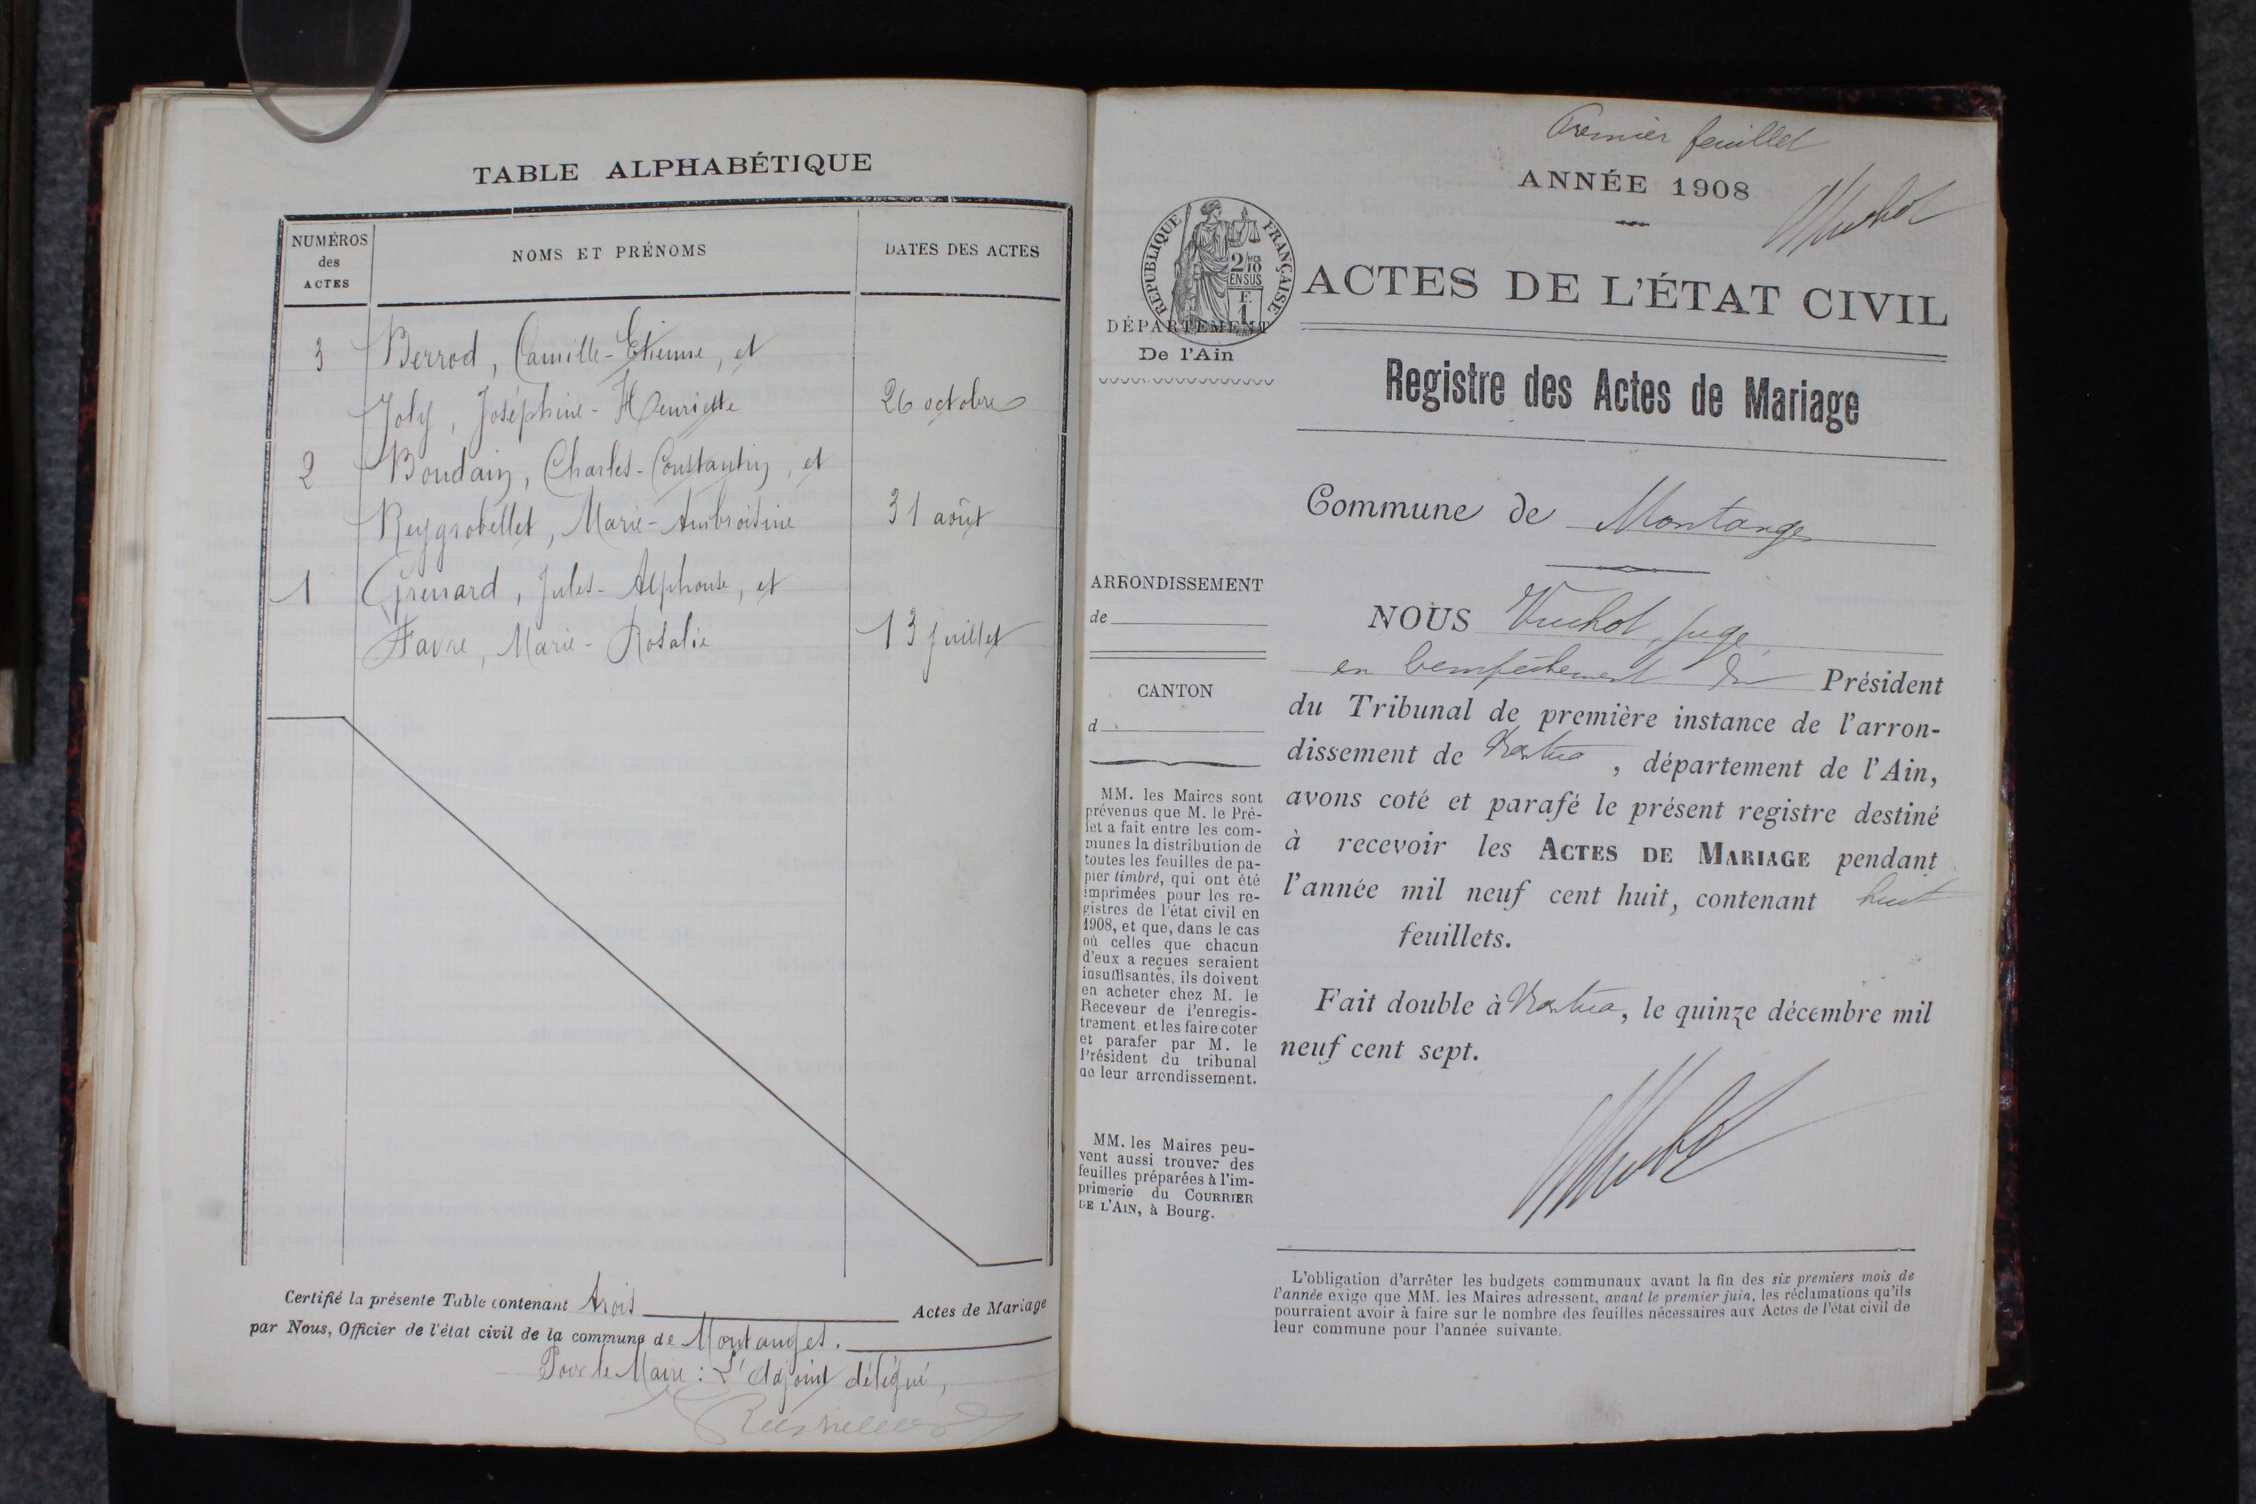 TABLE ALPHABÉTIQUE
NUMÉROS
des
ACTES
NOMS ET PRÉNOMS
DATES DES ACTES
3 Berrod, Camille-Etienne, et
Joly, Joséphine-Henriette 26 octobre
2 Boudain, Charles-Constantin, et
Reygrobellet, Marie-Ambroisine 31 août
1 Grenard, Jules-Alphonse, et
Favre, Marie-Rosalie 13 juillet
Certifié la présente Table contenant trois Actes de Mariage
par Nous, Officier de l'état civil de la commune de Montanges.
Pour le Maire : L'adjoint délégué,
Premier feuillet
ANNÉE 1908
RÉPUBLIQUE FRANÇAISE
2/10
EN SUS
F.
1
DÉPARTEMENT
De l'Ain
ACTES DE L'ÉTAT CIVIL
Registre des Actes de Mariage
Commune de Montanges
ARRONDISSEMENT
de
CANTON
d
MM. les Maires sont
prévenus que M. le Pré-
fet a fait entre les com-
munes la distribution de
toutes les feuilles de pa-
pier timbré, qui ont été
imprimées pour les re-
gistres de l'état civil en
1908, et que, dans le cas
où celles que chacun
d'eux a reçues seraient
insuffisantes, ils doivent
en acheter chez M. le
Receveur de l'enregis-
trement et les faire coter
et parafer par M. le
Président du tribunal
de leur arrondissement.
MM. les Maires peu-
vent aussi trouver des
feuilles préparées à l'im-
primerie du COURRIER
DE L'AIN, à Bourg.
NOUS Vuchot, juge
en l'empêchement du Président
du Tribunal de première instance de l'arron-
dissement de Nantua, département de l'Ain,
avons coté et parafé le présent registre destiné
à recevoir les ACTES DE MARIAGE pendant
l'année mil neuf cent huit, contenant huit
feuillets.
Fait double à Nantua, le quinze décembre mil
neuf cent sept.
L'obligation d'arrêter les budgets communaux avant la fin des six premiers mois de
l'année exige que MM. les Maires adressent, avant le premier juin, les réclamations qu'ils
pourraient avoir à faire sur le nombre des feuilles nécessaires aux Actes de l'état civil de
leur commune pour l'année suivante.